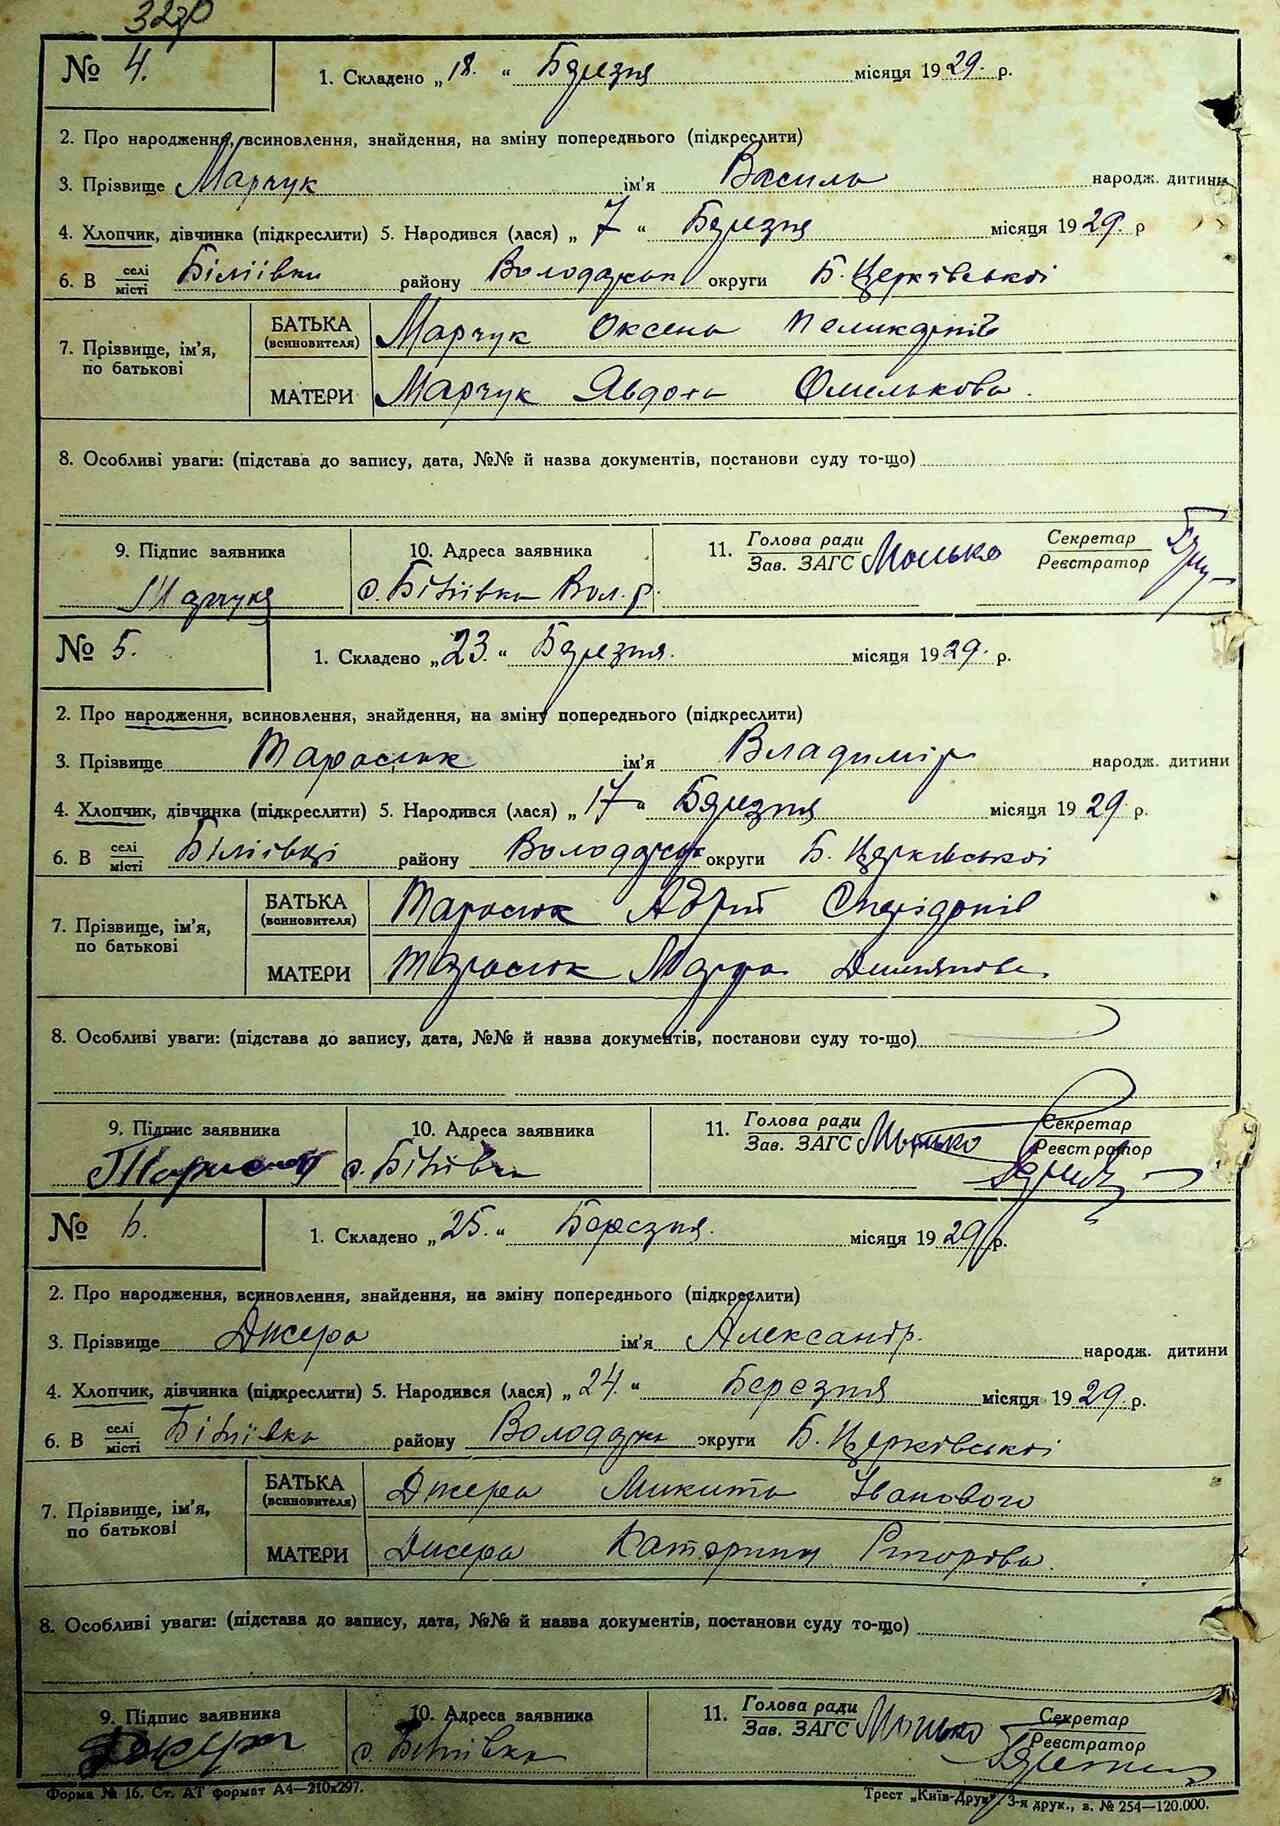 № 4. 1. Складено „18.“ Березня місяця 1929. р.
2. Про народження, всиновлення, знайдення, на зміну попереднього (підкреслити)
3. Прізвище Марчук ім'я Василь народж. дитини
4. Хлопчик, дівчинка (підкреслити) 5. Народився (лася) „7“ Березня місяця 1929. р
6. В селі місті Біліївки району Володарськ округи Б. Церківської
7. Прізвище, ім'я, по батькові
БАТЬКА (всиновителя) Марчук Оксень
МАТЕРИ Марчук Явдоха Омелькова.
8. Особливі уваги: (підстава до запису, дата, №№ й назва документів, постанови суду то-що)
9. Підпис заявника 10. Адреса заявника 11. Голова ради Зав. ЗАГС Секретар Реєстратор
Марчук с. Біліївка Вол. р.
№ 5. 1. Складено „23.“ Березня. місяця 1929. р.
2. Про народження, всиновлення, знайдення, на зміну попереднього (підкреслити)
3. Прізвище Тарасюк ім'я Владимір народж. дитини
4. Хлопчик, дівчинка (підкреслити) 5. Народився (лася) „17“ Березня місяця 1929. р.
6. В селі місті Біліївці району Володарськ округи Б. Церківської
7. Прізвище, ім'я, по батькові
БАТЬКА (всиновителя) Тарасюк Спирідонів
МАТЕРИ Тарасюк Марфа
8. Особливі уваги: (підстава до запису, дата, №№ й назва документів, постанови суду то-що)
9. Підпис заявника 10. Адреса заявника 11. Голова ради Зав. ЗАГС Секретар Реєстратор
Тарасюк с. Біліївка
№ 6. 1. Складено „25.“ Березня. місяця 1929. р.
2. Про народження, всиновлення, знайдення, на зміну попереднього (підкреслити)
3. Прізвище Джера ім'я Александр. народж. дитини
4. Хлопчик, дівчинка (підкреслити) 5. Народився (лася) „24.“ Березня місяця 1929. р.
6. В селі місті Біліївка району округи Б. Церківської
7. Прізвище, ім'я, по батькові
БАТЬКА (всиновителя) Джера Микита Іванового
МАТЕРИ Джера Катерина
8. Особливі уваги: (підстава до запису, дата, №№ й назва документів, постанови суду то-що)
9. Підпис заявника 10. Адреса заявника 11. Голова ради Зав. ЗАГС Секретар Реєстратор
с. Біліївка
Форма № 16. Ст. АТ формат А4—210х297. Трест „Київ-Друк“. 3-я друк., з. № 254—120.000.